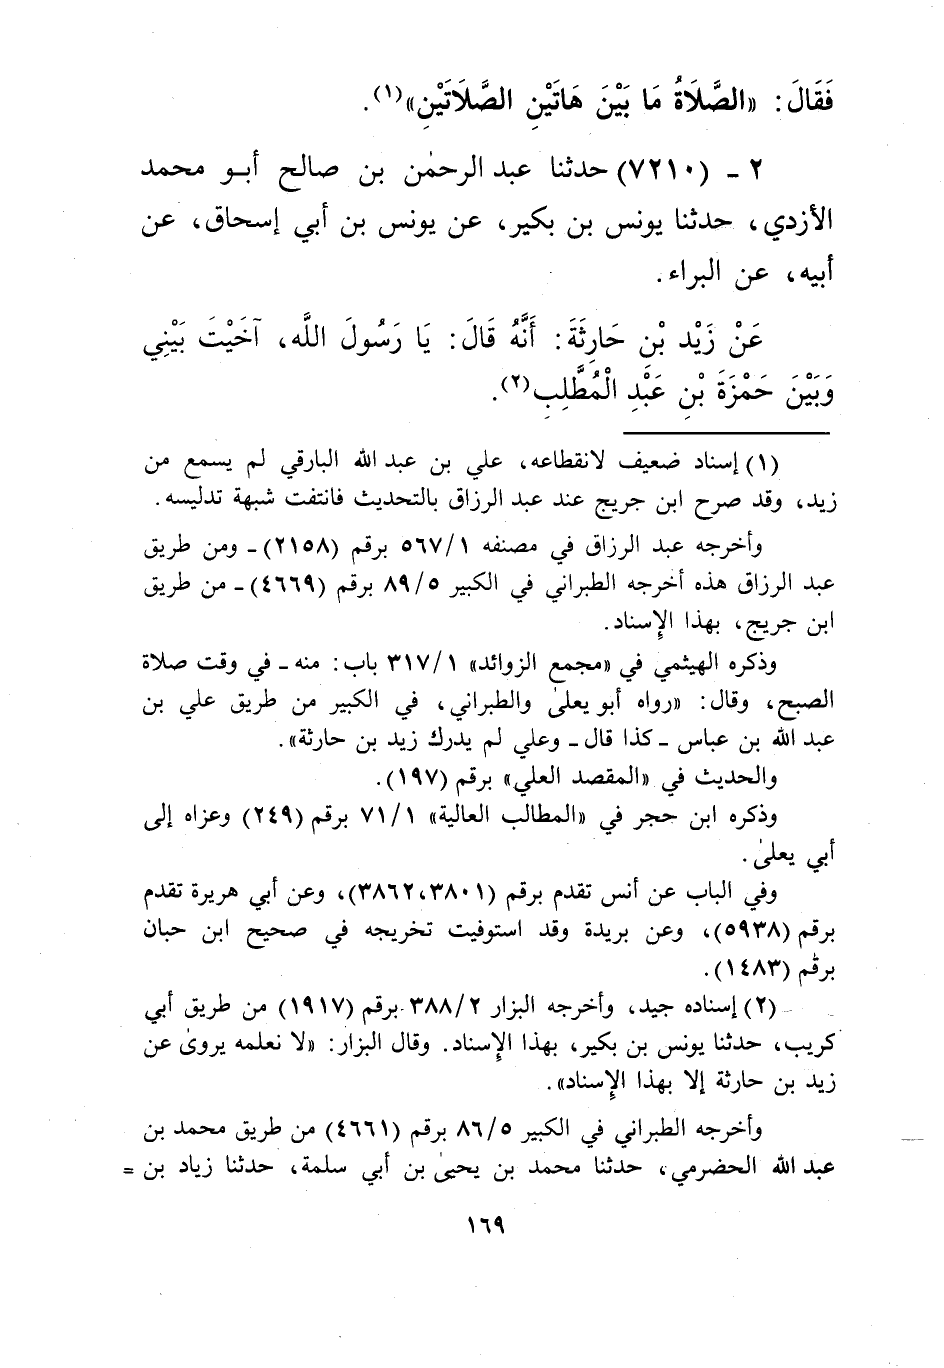 فَقَالَ: «الصَّلَاةُ مَا بَيْنَ هَاتَيْنِ الصَّلَاتَيْنِ»(١).
٢ - (٧٢١٠) حدثنا عبد الرحمٰن بن صالح أبو محمد
الأزدي، حدثنا يونس بن بكير، عن يونس بن أبي إسحاق، عن
أبيه، عن البراء.
عَنْ زَيْدِ بْنِ حَارِثَةَ: أَنَّهُ قَالَ: يَا رَسُولَ اللَّه، آخَيْتَ بَيْنِي
وَبَيْنَ حَمْزَةَ بْنِ عَبْدِ الْمُطَّلِبِ(٢).
(١) إسناد ضعيف لانقطاعه، علي بن عبد الله البارقي لم يسمع من
زيد، وقد صرح ابن جريج عند عبد الرزاق بالتحديث فانتفت شبهة تدليسه.
وأخرجه عبد الرزاق في مصنفه ٥٦٧/١ برقم (٢١٥٨) - ومن طريق
عبد الرزاق هذه أخرجه الطبراني في الكبير ٨٩/٥ برقم (٤٦٦٩) - من طريق
ابن جريج، بهذا الإسناد.
وذكره الهيثمي في «مجمع الزوائد» ٣١٧/١ باب: منه - في وقت صلاة
الصبح، وقال: «رواه أبو يعلىٰ والطبراني، في الكبير من طريق علي بن
عبد الله بن عباس - كذا قال - وعلي لم يدرك زيد بن حارثة».
والحديث في «المقصد العلي» برقم (١٩٧).
وذكره ابن حجر في «المطالب العالية» ٧١/١ برقم (٢٤٩) وعزاه إلى
أبي يعلىٰ.
وفي الباب عن أنس تقدم برقم (٣٨٠١، ٣٨٦٢)، وعن أبي هريرة تقدم
برقم (٥٩٣٨)، وعن بريدة وقد استوفيت تخريجه في صحيح ابن حبان
برقم (١٤٨٣).
(٢) إسناده جيد، وأخرجه البزار ٣٨٨/٢ برقم (١٩١٧) من طريق أبي
كريب، حدثنا يونس بن بكير، بهذا الإسناد. وقال البزار: «لا نعلمه يروىٰ عن
زيد بن حارثة إلا بهذا الإسناد».
وأخرجه الطبراني في الكبير ٨٦/٥ برقم (٤٦٦١) من طريق محمد بن
عبد الله الحضرمي، حدثنا محمد بن يحيىٰ بن أبي سلمة، حدثنا زياد بن =
١٦٩